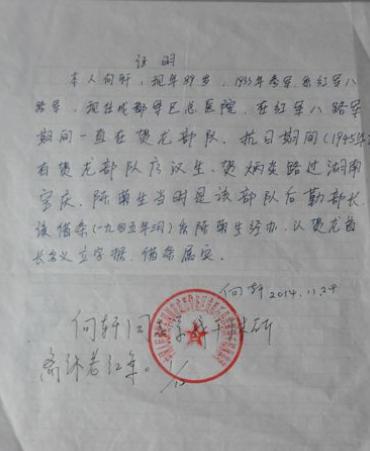 证明
本人向轩，现年89岁，1935年参军，系红军八
路军，现住成都军区总医院，在红军八路军
期间一直在贺龙部队。抗日期间(1945年)
有贺龙部队廖汉生、贺炳炎路过湖南
宝庆，陈菊生当时是该部队后勤部长，
该借条(一九四五年间)系陈菊生经办，以贺龙首
长名义立字据，借条属实。
向轩 2014.11.24
向轩同
离休老红军。